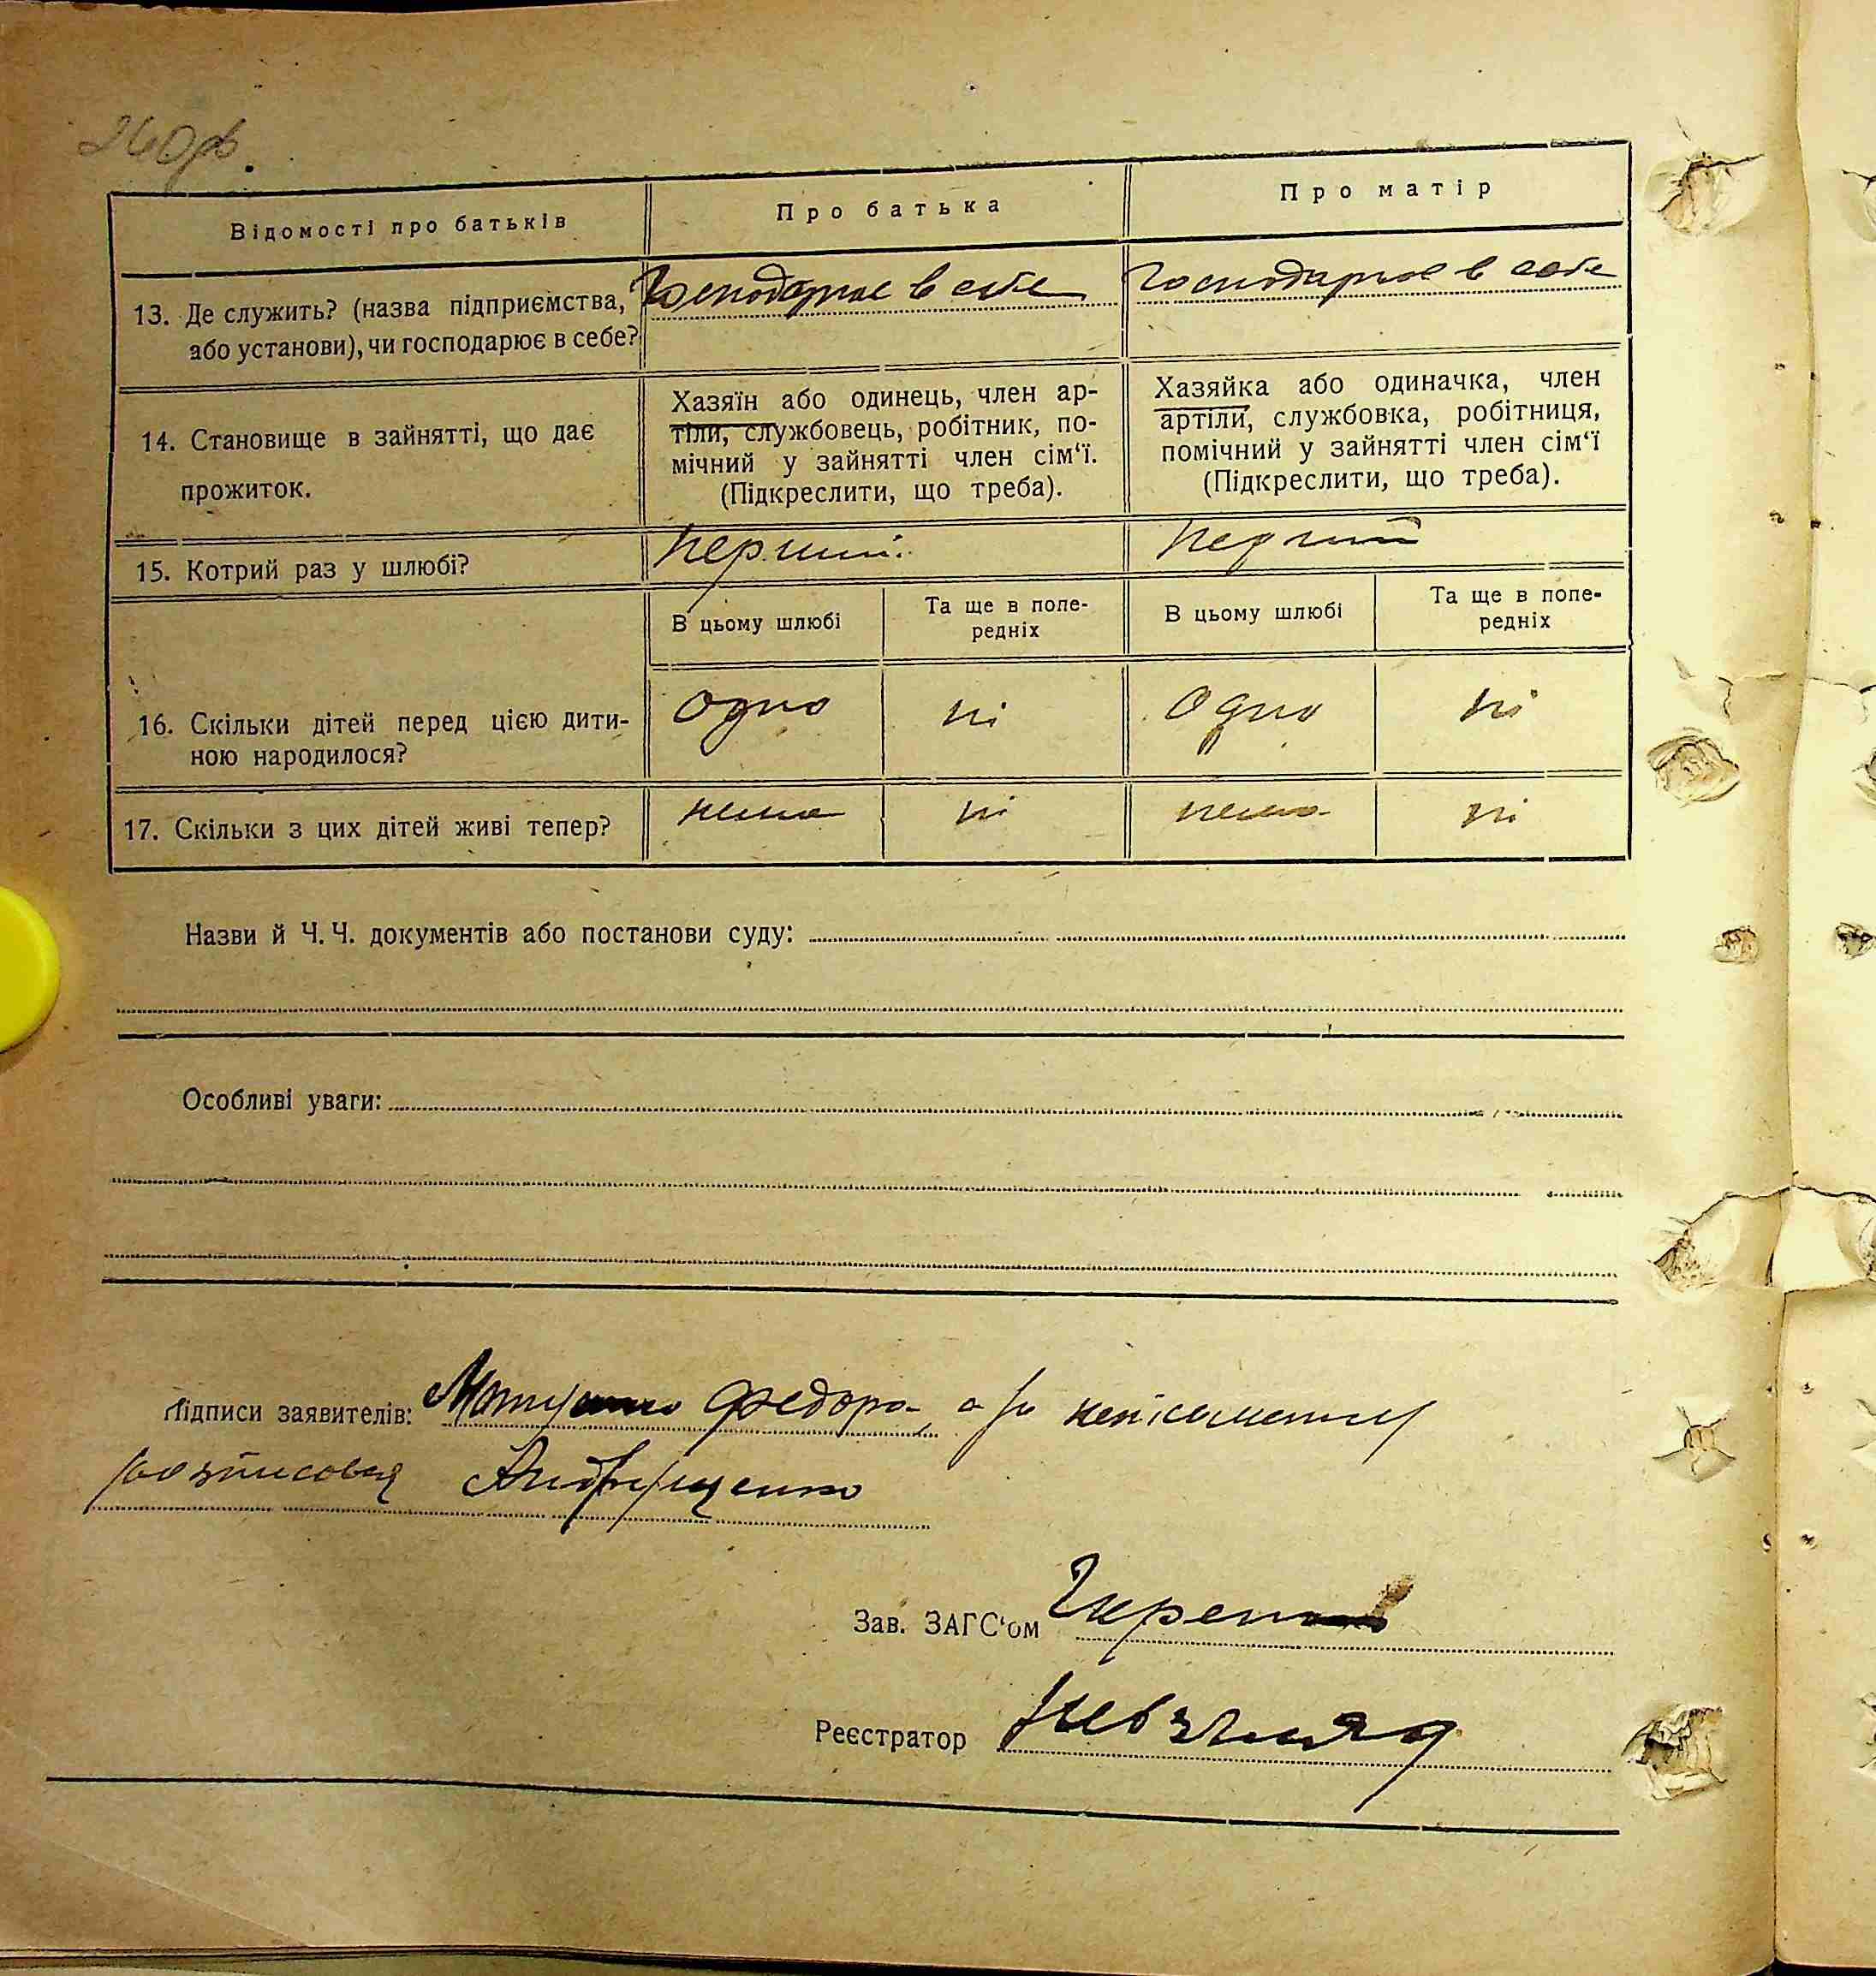 26 зв.
Відомості про батьків
Про батька
Про матір
13. Де служить? (назва підприємства,
або установи), чи господарює в себе?
Господарює в себе
Господарює в себе
14. Становище в зайнятті, що дає
прожиток.
Хазяїн або одинець, член ар-
тіли, службовець, робітник, по-
мічний у зайнятті член сім‘ї.
(Підкреслити, що треба).
Хазяйка або одиначка, член
артіли, службовка, робітниця,
помічний у зайнятті член сім‘ї
(Підкреслити, що треба).
15. Котрий раз у шлюбі?
перший
перший
В цьому шлюбі
Та ще в попе-
редніх
В цьому шлюбі
Та ще в попе-
редніх
16. Скільки дітей перед цією дити-
ною народилося?
одно
ні
одно
ні
17. Скільки з цих дітей живі тепер?
нема
ні
нема
ні
Назви й Ч. Ч. документів або постанови суду:
Особливі уваги:
Підписи заявителів: Федора, а за
Андрущенко
Зав. ЗАГС‘ом
Реєстратор